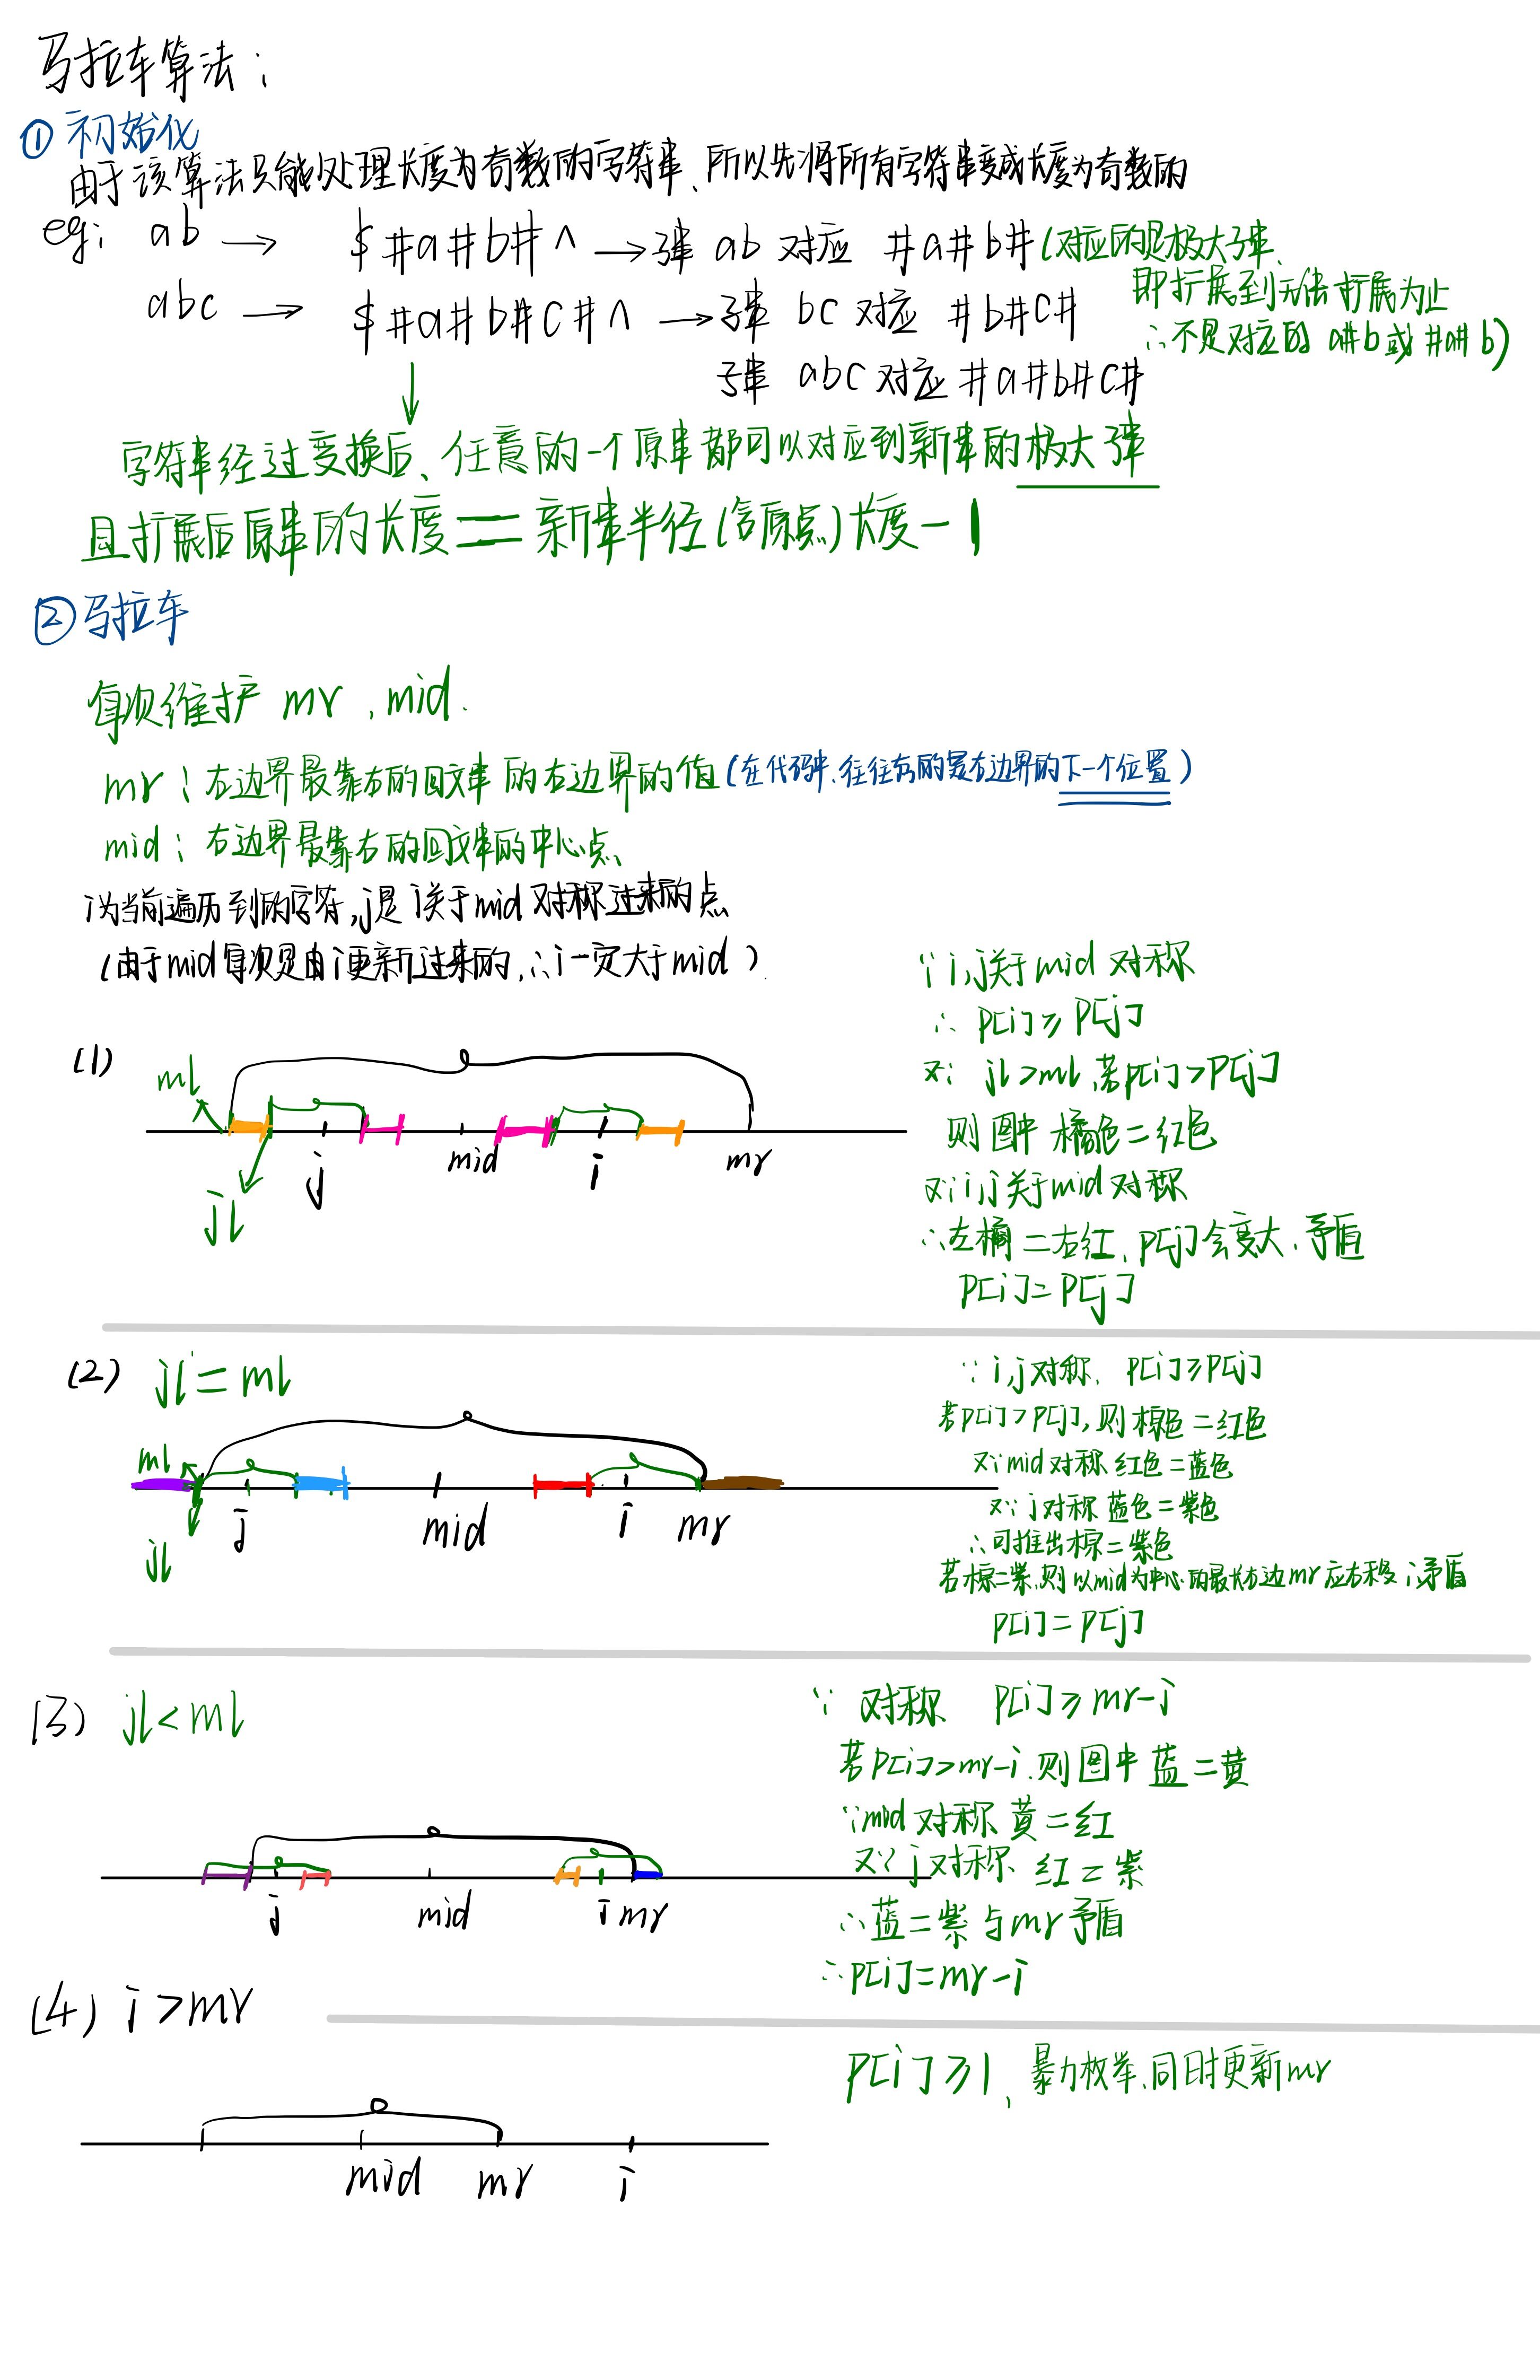 马拉车算法：
① 初始化
由于该算法只能处理长度为奇数的字符串、所以先将所有字符串变成长度为奇数的
eg: ab → $#a#b#^ → 子串 ab 对应 #a#b# (对应的是极大子串、
即扩展到无法扩展为止
abc → $#a#b#c#^ → 子串 bc 对应 #b#c#
∴不是对应的 a#b或#a#b)
子串 abc 对应 #a#b#c#
字符串经过变换后、任意的一个原串都可以对应到新串的极大子串
且扩展后原串的长度 = 新串半径(含原点)长度-1
② 马拉车
每次维护 mr、mid.
mr: 右边界最靠右的回文串的右边界的值 (在代码中、往往存的是右边界的下一个位置)
mid: 右边界最靠右的回文串的中心点、
i为当前遍历到的字符,j是i关于mid对称过来的点
(由于mid每次是由i更新过来的,∴i一定大于mid).
∵i,j关于mid对称
∴ p[i]≥p[j]
又∵ jl>ml,若p[i]>p[j]
则图中橘色=红色
又∵i,j关于mid对称
∴左橘=右红、p[j]会变大、矛盾
p[i]=p[j]
(1)
ml
jl
j
mid
i
mr
(2) jl=ml
∵i,j对称、p[i]≥p[j]
若p[i]>p[j],则棕色=红色
又∵mid对称 红色=蓝色
又∵j对称 蓝色=紫色
∴可推出棕=紫色
若棕=紫,则以mid为中心的最大右边mr应右移∴矛盾
p[i]=p[j]
ml
jl
j
mid
i
mr
(3) jl<ml
∵ 对称、p[i]≥mr-i
若p[i]>mr-i.则图中蓝=黄
∵mid对称 黄=红
又∵j对称、红=紫
∴蓝=紫与mr矛盾
∴p[i]=mr-i
j
mid
i
mr
(4) i>mr
p[i]≥1、暴力枚举、同时更新mr
mid
mr
i